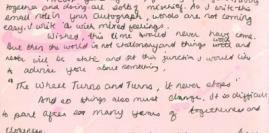 together and doing all sorts of mischief. As I write this
small note in your Autograph, words are not coming
easy. I write it with mixed feelings.
Wished, this time would never have come.
But then the world is not stationary and things work and
never will be static and at this junction I would like
to advise you about something.
"The Wheel Turns and Turns, it never stops"
And so things also must change. It is difficult
to part after so many years of togetherness and